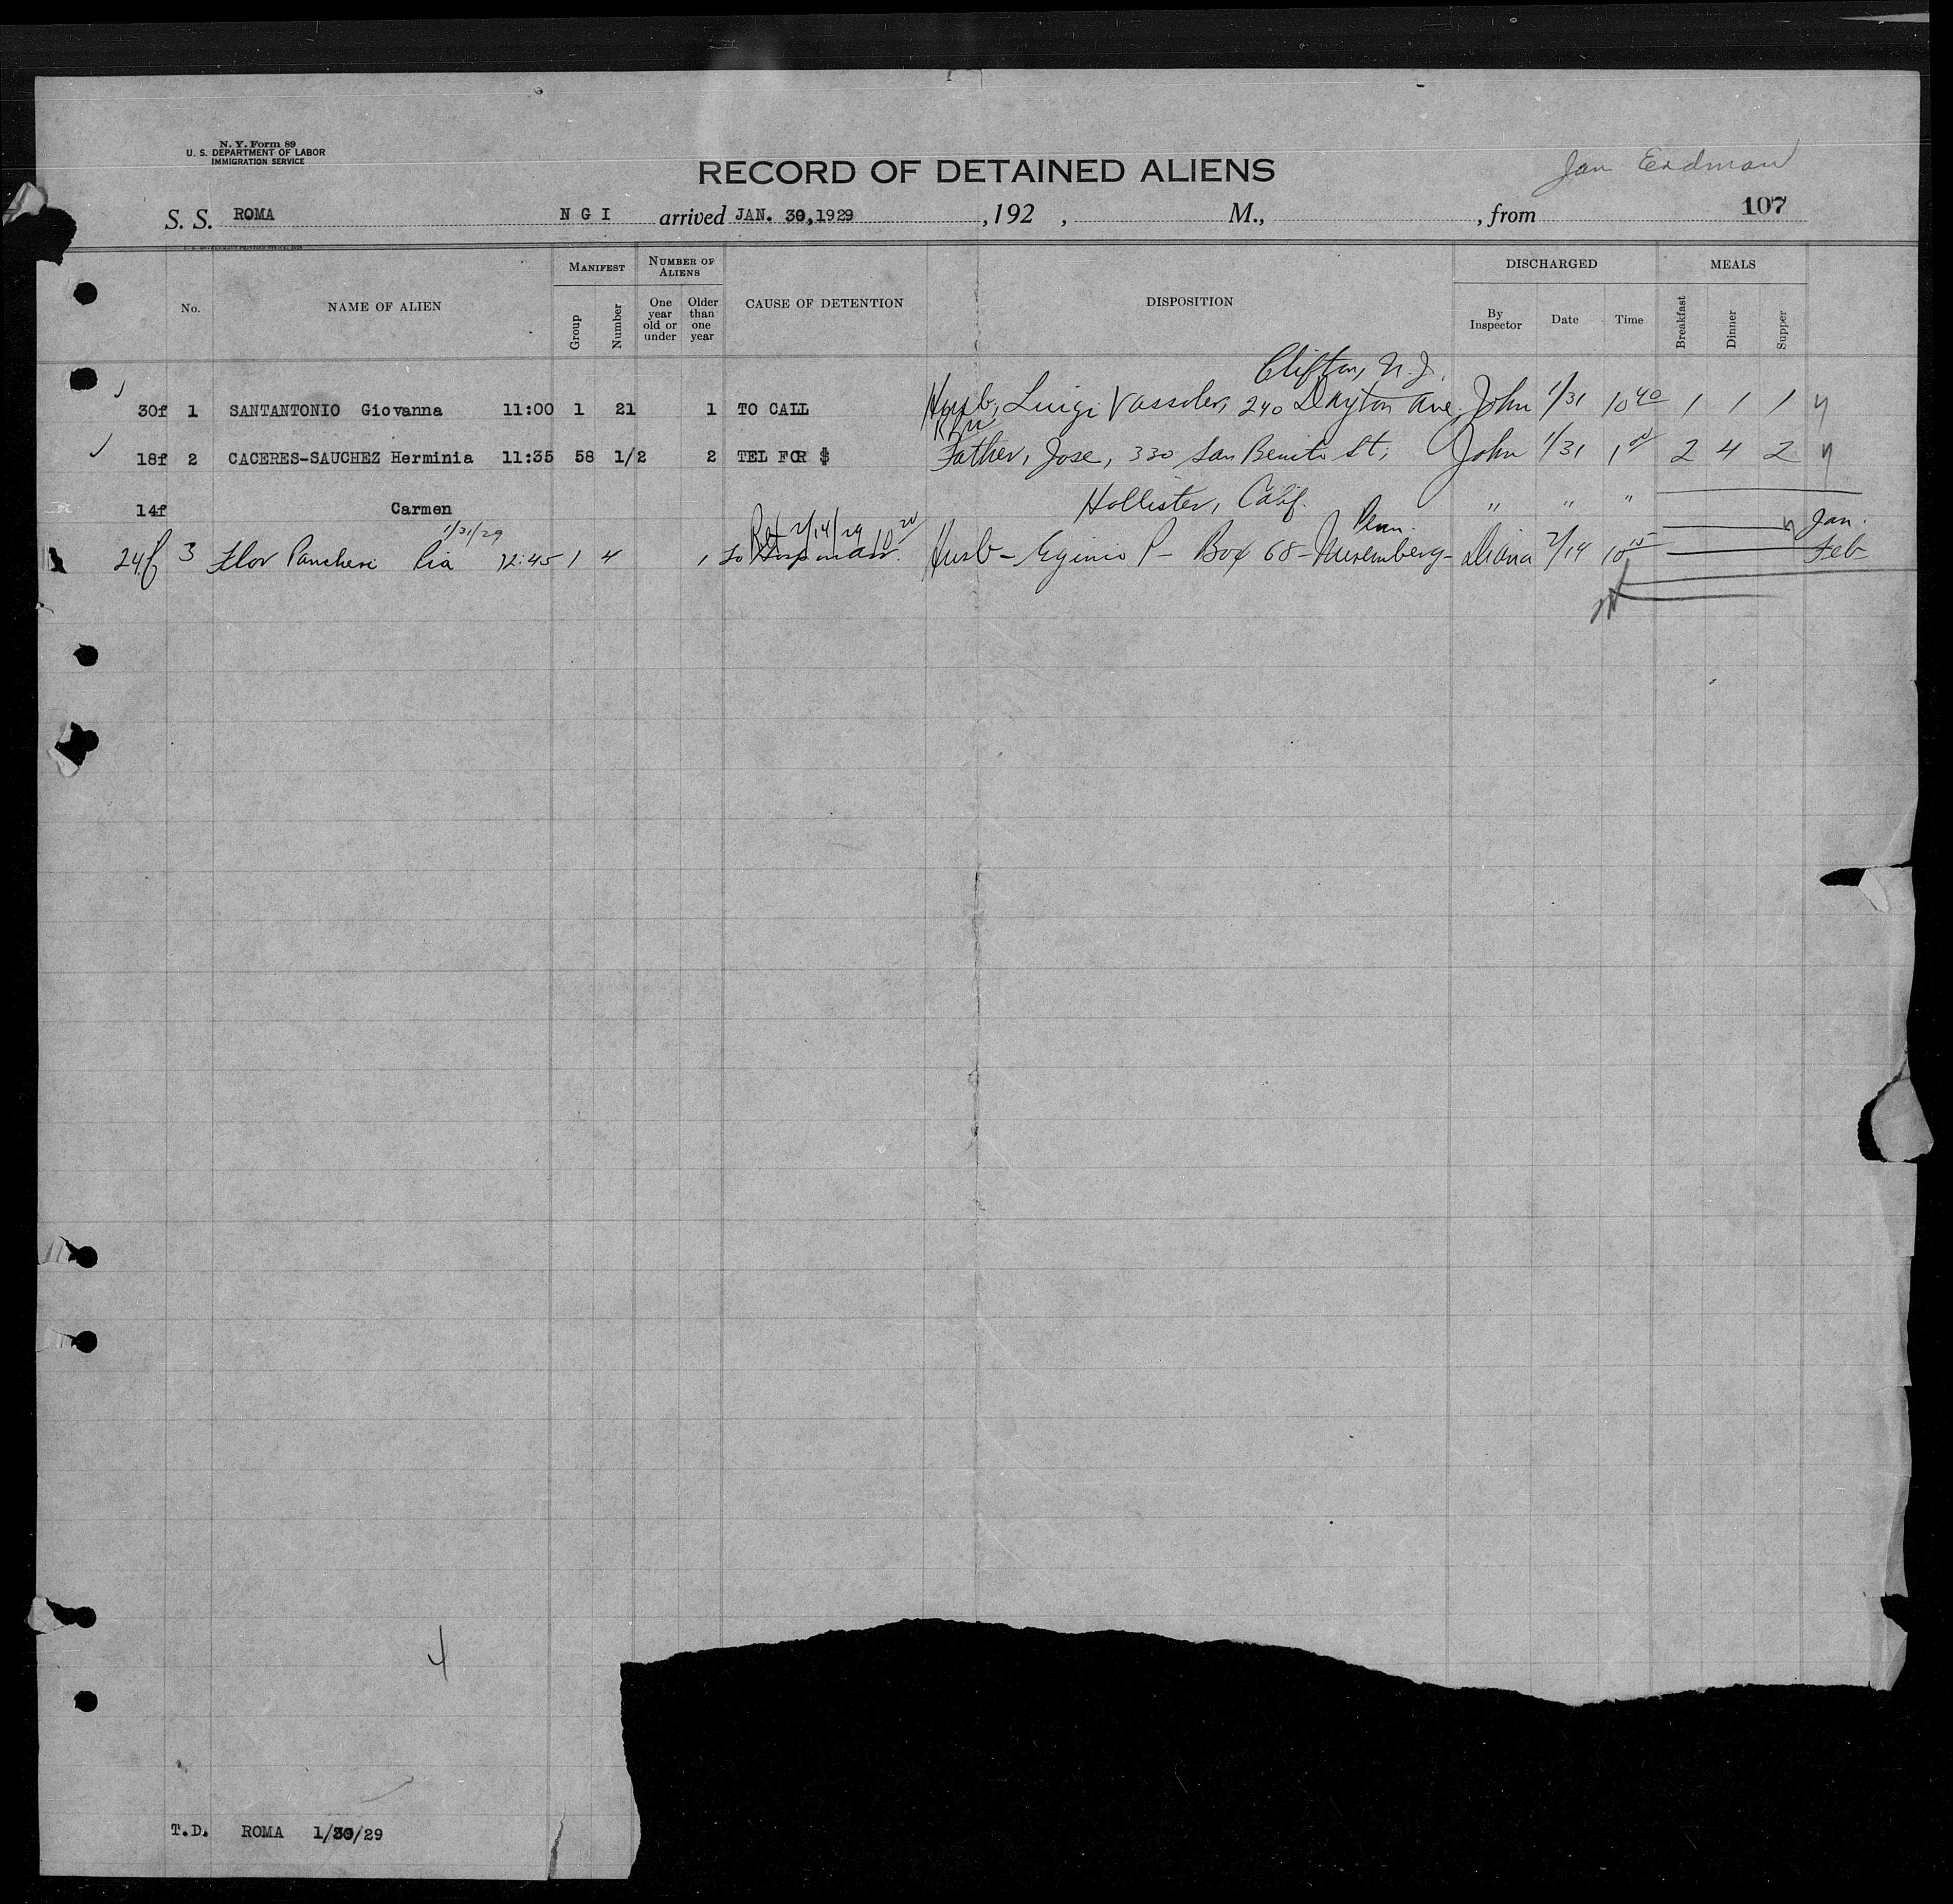 N. Y. Form 89
U. S. DEPARTMENT OF LABOR
IMMIGRATION SERVICE
RECORD OF DETAINED ALIENS
Jan Erdman
S. S. ROMA N G I arrived JAN. 30,1929 , 192 , M., , from 107
No. NAME OF ALIEN MANIFEST Group Number NUMBER OF ALIENS One year old or under Older than one year CAUSE OF DETENTION DISPOSITION DISCHARGED By Inspector Date Time MEALS Breakfast Dinner Supper
Clifton, N. J.
30f 1 SANTANTONIO Giovanna 11:00 1 21 1 TO CALL Husb, Luigi Vassoler, 240 Dayton Ave. John 1/31 10 40 1 1 1
18f 2 CACERES-SAUCHEZ Herminia 11:35 58 1/2 2 TEL FOR $ Father, Jose, 330 San Benito St, John 1/31 1 00 2 4 2
14f Carmen Hollister, Calif. " " "
1/31/29 2/14/29 10 20 Penn. Jan.
24f 3 Flor Pancheri Pia 12:45 1 4 1 To Husb - Eginio P - Box 68 - Nuremberg - Diana 2/14 10 15 Feb
4
T.D. ROMA 1/30/29